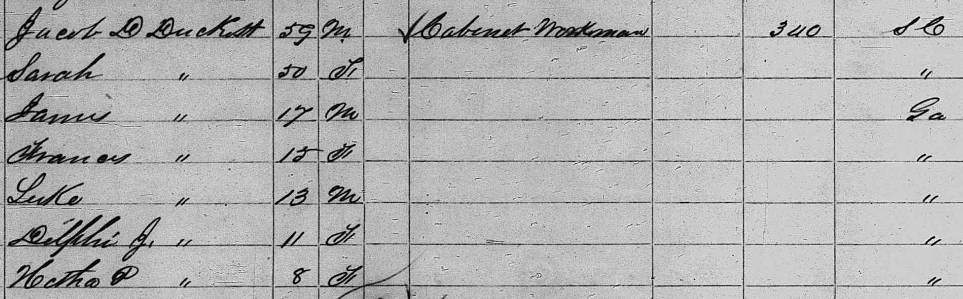 Jacob D Duckett 59 M Cabinet Workman 340 S C
Sarah " 50 F "
James " 17 M Ga
Frances " 15 F "
Luke " 13 M "
Delphi J. " 11 F "
Hetha P " 8 F "